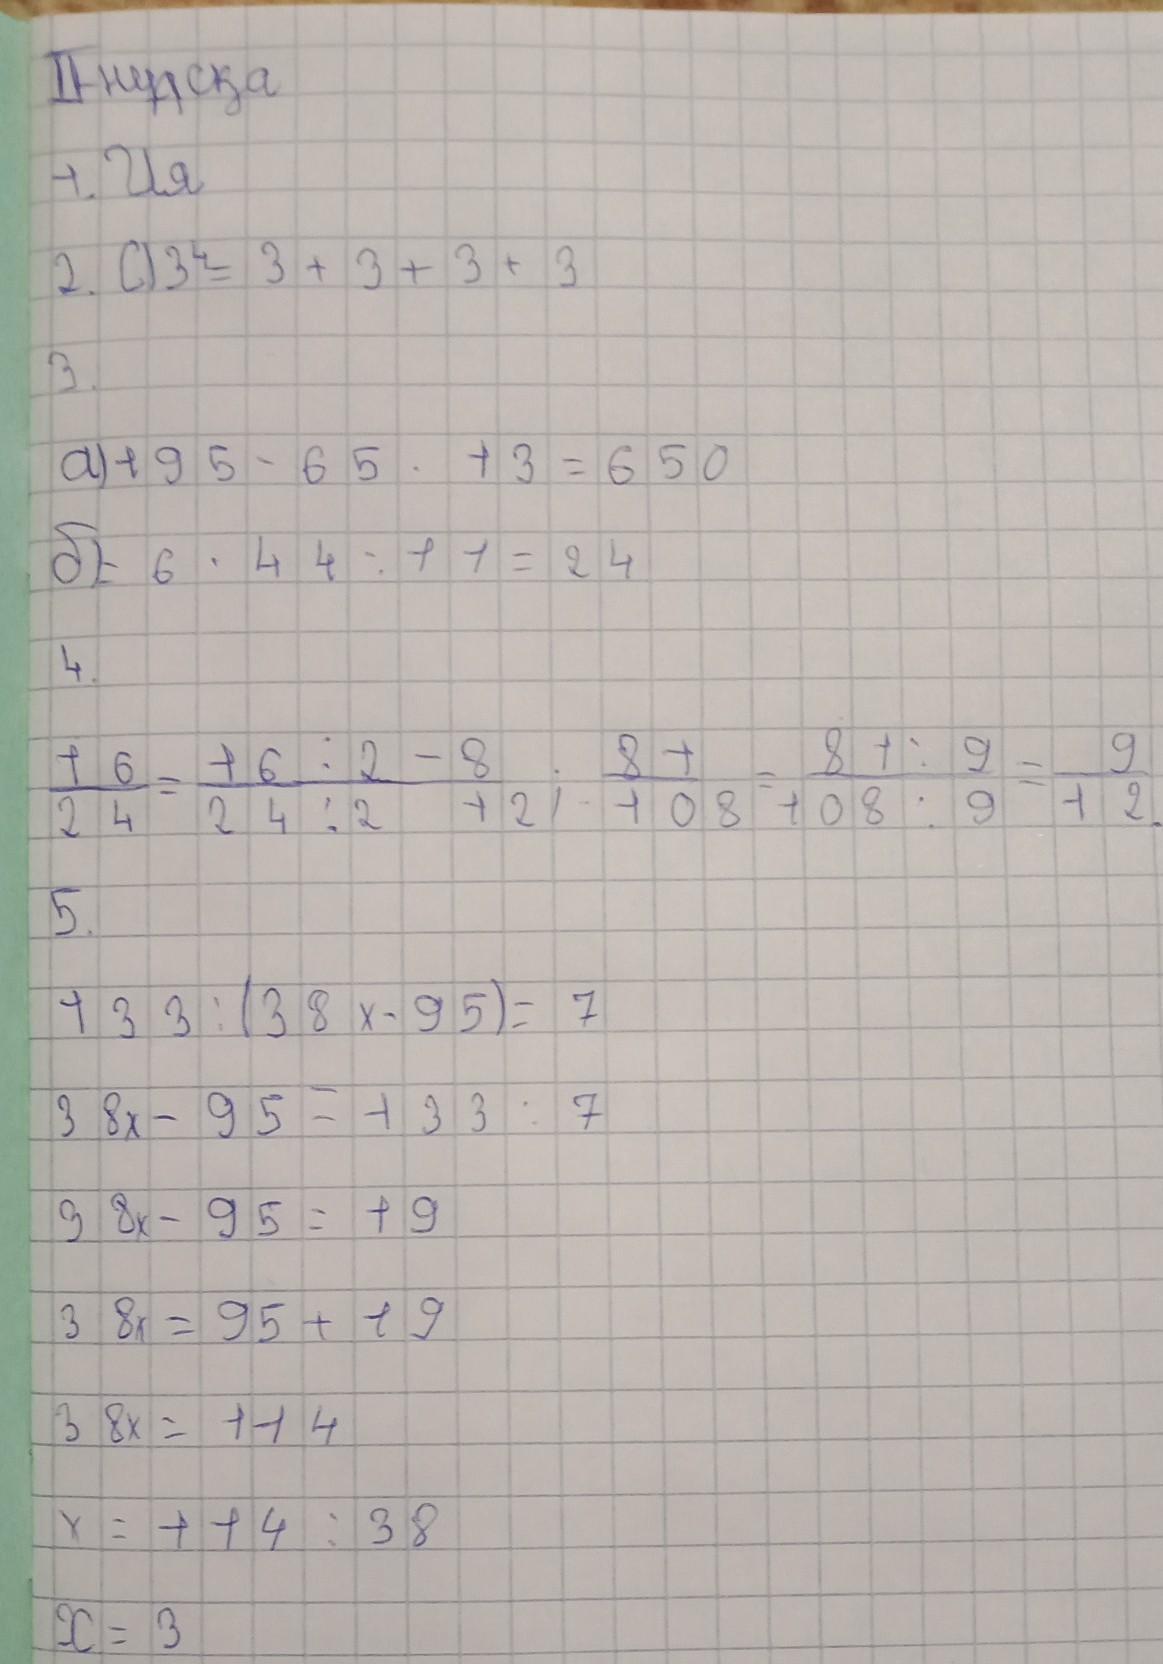 II-нұсқа
1. Ия
2. C) 3⁴ = 3 + 3 + 3 + 3
3.
а) 195 - 65 · 13 = 650
б) - 6 · 44 : 11 = 24
4.
16/24 = 16 : 2 - 8/24 : 2 12; 81/108 = 81 : 9/108 : 9 = 9/12.
5.
133 : (38x - 95) = 7
38x - 95 = 133 : 7
38x - 95 = 19
38x = 95 + 19
38x = 114
x = 114 : 38
x = 3